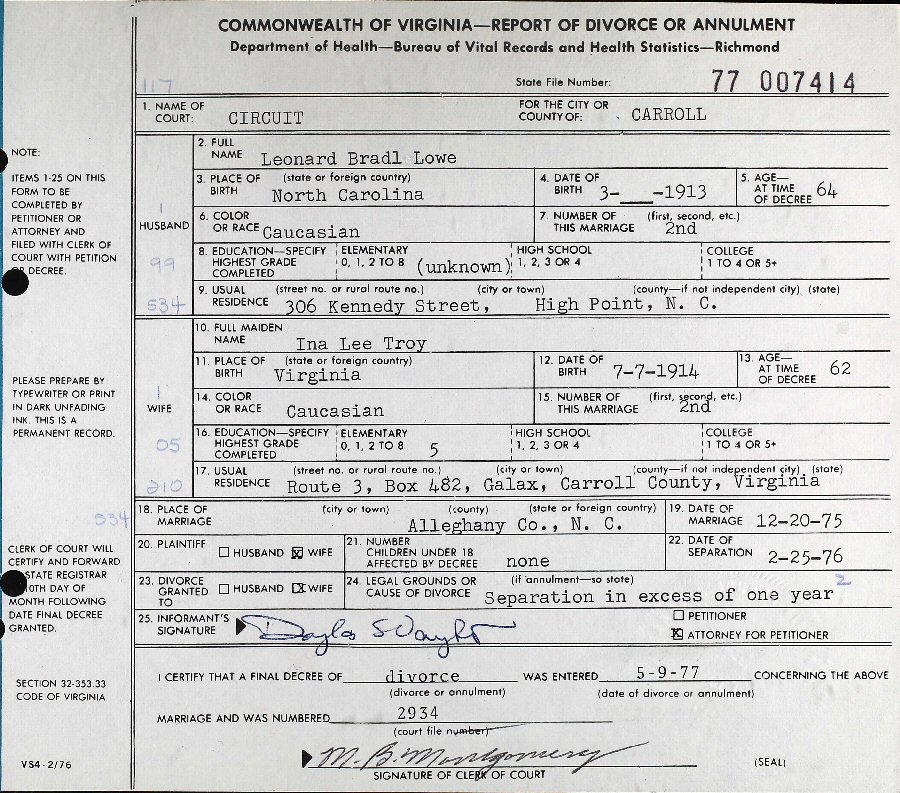 COMMONWEALTH OF VIRGINIA—REPORT OF DIVORCE OR ANNULMENT
Department of Health—Bureau of Vital Records and Health Statistics—Richmond
117
State File Number: 77 007414
1. NAME OF COURT: CIRCUIT FOR THE CITY OR COUNTY OF: CARROLL
NOTE:
ITEMS 1-25 ON THIS
FORM TO BE
COMPLETED BY
PETITIONER OR
ATTORNEY AND
FILED WITH CLERK OF
COURT WITH PETITION
DECREE.
HUSBAND
1
99
534
2. FULL NAME Leonard Bradl Lowe
3. PLACE OF BIRTH (state or foreign country) North Carolina 4. DATE OF BIRTH 3-___-1913 5. AGE— AT TIME OF DECREE 64
6. COLOR OR RACE Caucasian 7. NUMBER OF THIS MARRIAGE (first, second, etc.) 2nd
8. EDUCATION—SPECIFY HIGHEST GRADE COMPLETED ELEMENTARY 0, 1, 2 TO 8 (unknown) HIGH SCHOOL 1, 2, 3 OR 4 COLLEGE 1 TO 4 OR 5+
9. USUAL RESIDENCE (street no. or rural route no.) (city or town) (county—if not independent city) (state)
306 Kennedy Street, High Point, N. C.
PLEASE PREPARE BY
TYPEWRITER OR PRINT
IN DARK UNFADING
INK. THIS IS A
PERMANENT RECORD.
WIFE
1
05
210
534
10. FULL MAIDEN NAME Ina Lee Troy
11. PLACE OF BIRTH (state or foreign country) Virginia 12. DATE OF BIRTH 7-7-1914 13. AGE— AT TIME OF DECREE 62
14. COLOR OR RACE Caucasian 15. NUMBER OF THIS MARRIAGE (first, second, etc.) 2nd
16. EDUCATION—SPECIFY HIGHEST GRADE COMPLETED ELEMENTARY 0, 1, 2 TO 8 5 HIGH SCHOOL 1, 2, 3 OR 4 COLLEGE 1 TO 4 OR 5+
17. USUAL RESIDENCE (street no. or rural route no.) (city or town) (county—if not independent city) (state)
Route 3, Box 482, Galax, Carroll County, Virginia
18. PLACE OF MARRIAGE (city or town) (county) (state or foreign country) Alleghany Co., N. C. 19. DATE OF MARRIAGE 12-20-75
20. PLAINTIFF HUSBAND X WIFE 21. NUMBER CHILDREN UNDER 18 AFFECTED BY DECREE none 22. DATE OF SEPARATION 2-25-76
23. DIVORCE GRANTED TO HUSBAND X WIFE 24. LEGAL GROUNDS OR CAUSE OF DIVORCE (if annulment—so state) Separation in excess of one year 2
25. INFORMANT'S SIGNATURE PETITIONER
X ATTORNEY FOR PETITIONER
CLERK OF COURT WILL
CERTIFY AND FORWARD
STATE REGISTRAR
10TH DAY OF
MONTH FOLLOWING
DATE FINAL DECREE
GRANTED.
SECTION 32-353.33
CODE OF VIRGINIA
VS4-2/76
I CERTIFY THAT A FINAL DECREE OF divorce WAS ENTERED 5-9-77 CONCERNING THE ABOVE
(divorce or annulment) (date of divorce or annulment)
MARRIAGE AND WAS NUMBERED 2934
(court file number)
M. B. Montgomery
SIGNATURE OF CLERK OF COURT (SEAL)